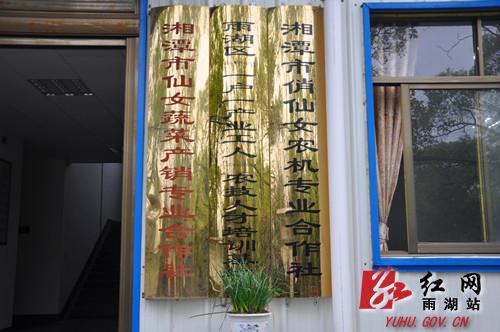 湘潭市俏仙女农机专业合作社
雨湖区 户 产业工人 农技人才培训
湘潭市仙女蔬菜产销专业合作社
红网
雨湖站
YUHU.GOV.CN